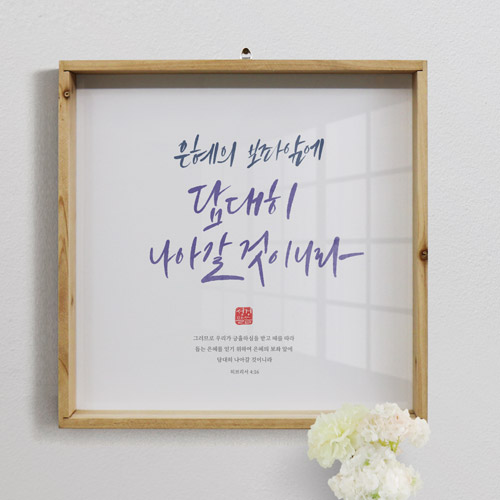 은혜의 보좌앞에
담대히
나아갈 것이니라
그러므로 우리가 긍휼하심을 받고 때를 따라
돕는 은혜를 얻기 위하여 은혜의 보좌 앞에
담대히 나아갈 것이니라
히브리서 4:16